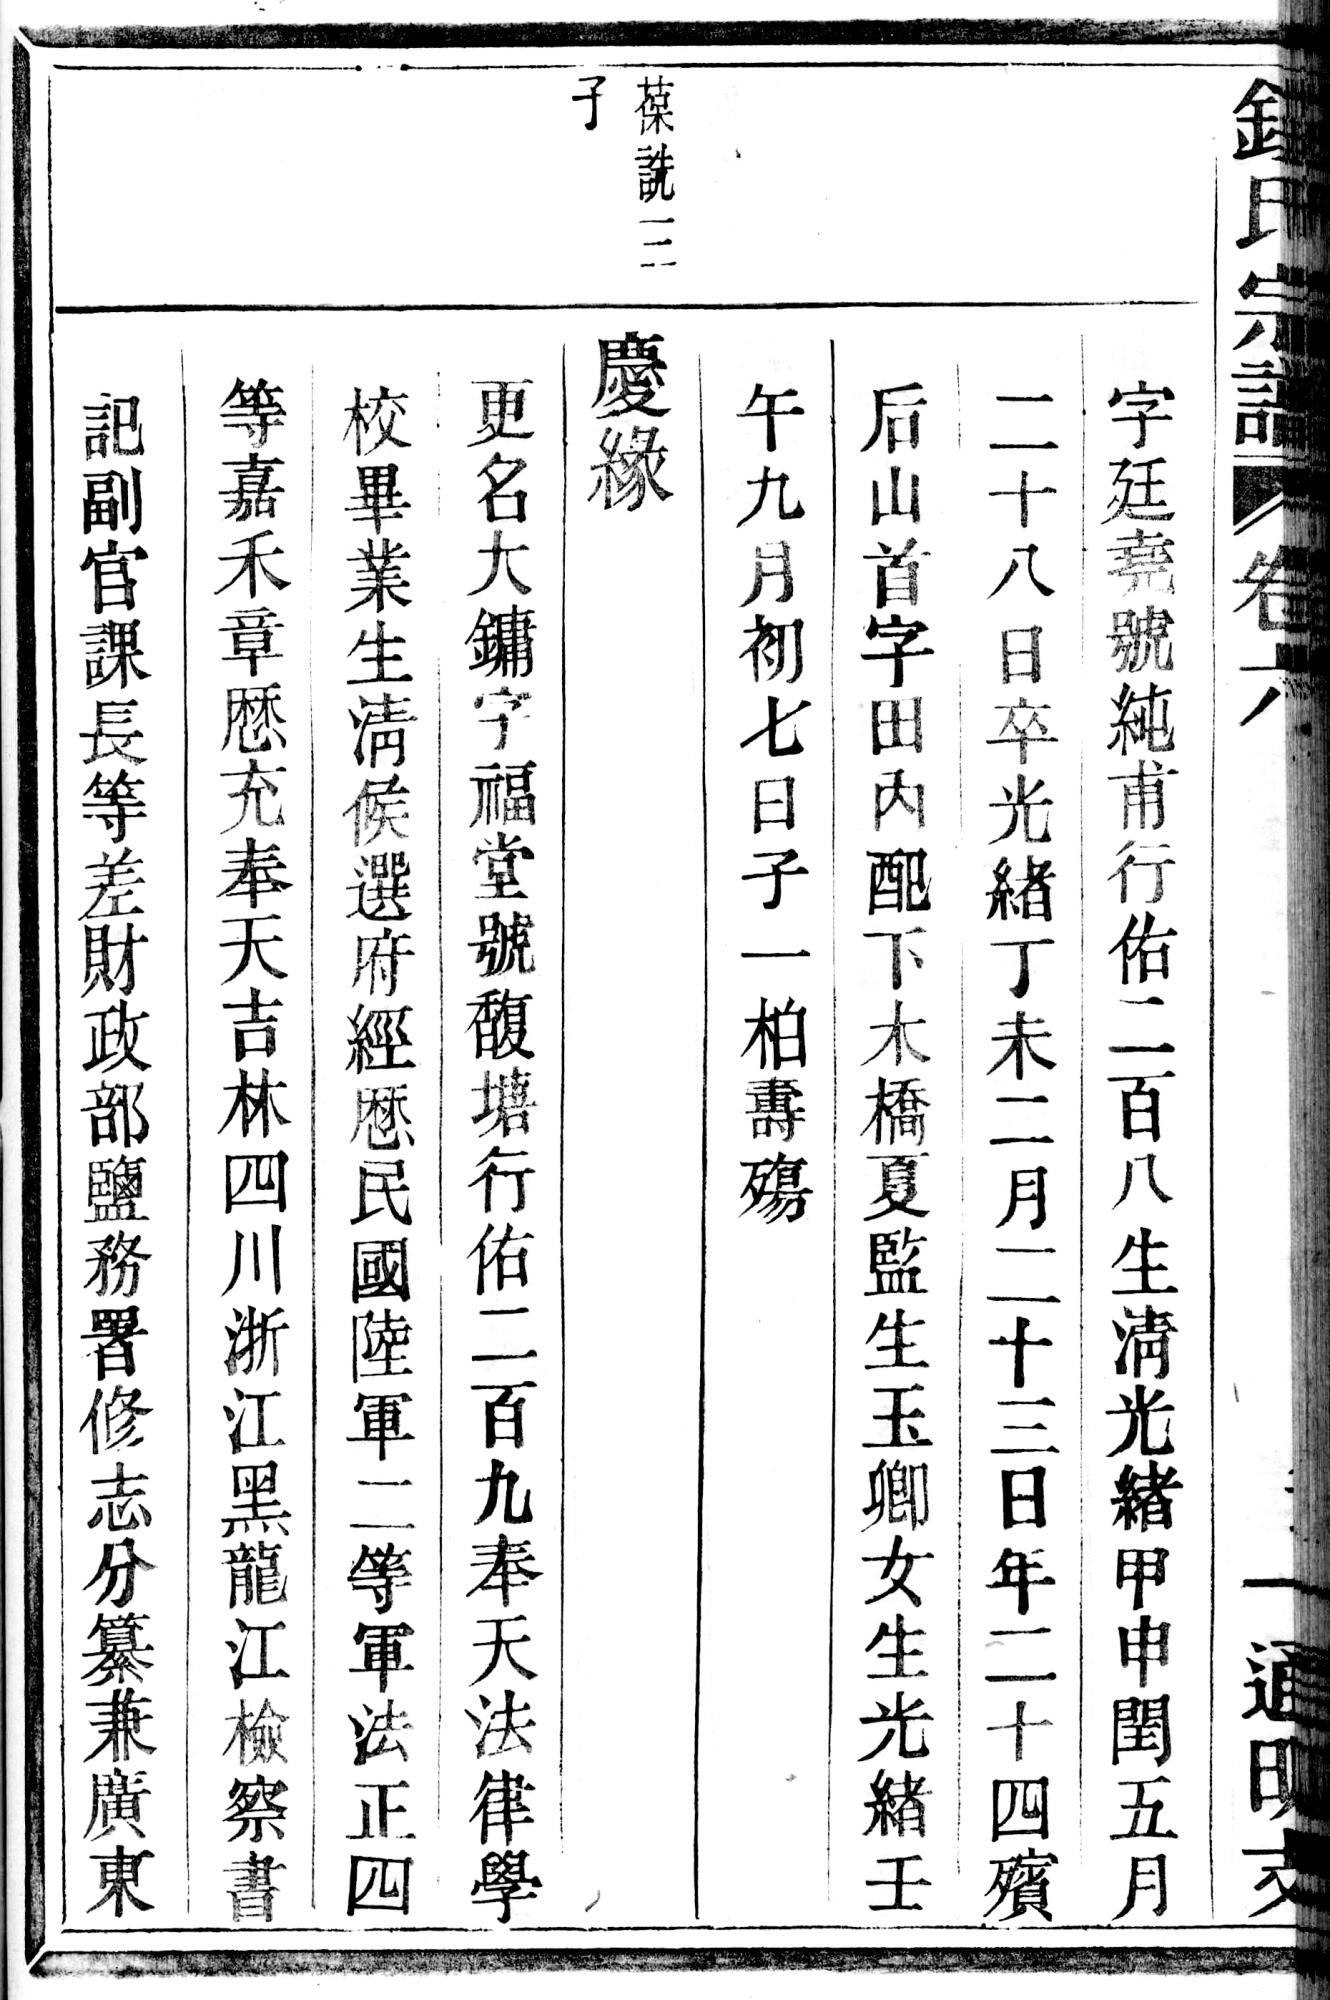 氏宗譜 卷六 一 通明支
字廷堯號純甫行佑二百八生淸光緒甲申閏五月
二十八日卒光緒丁未二月二十三日年二十四殯
后山首字田內配下木橋夏監生玉卿女生光緒壬
午九月初七日子一柏壽殤
葆詵一二
子
慶緣
更名大鏞字福堂號馥塘行佑二百九奉天法律學
校畢業生淸候選府經歷民國陸軍二等軍法正四
等嘉禾章歷充奉天吉林四川浙江黑龍江檢察書
記副官課長等差財政部鹽務署修志分纂兼廣東